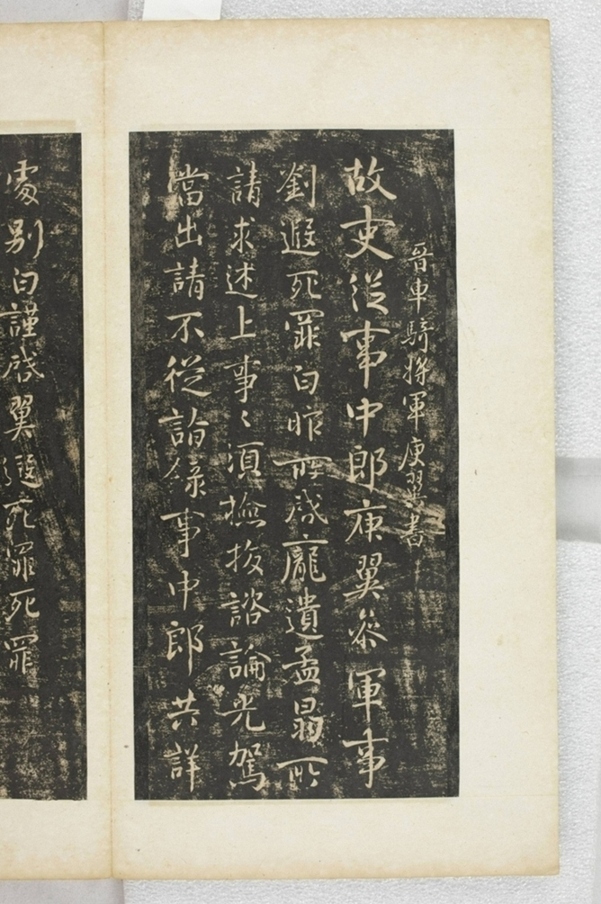 晋車騎将軍庾翼書
故吏從事中郎庾翼参軍事
劉遐死罪白昨所啓龐遺孟昌所
請求述上事〻須撫按諮論光駕
當出請不從詣錄事中郎共詳
處別白謹啓翼遐死罪死罪